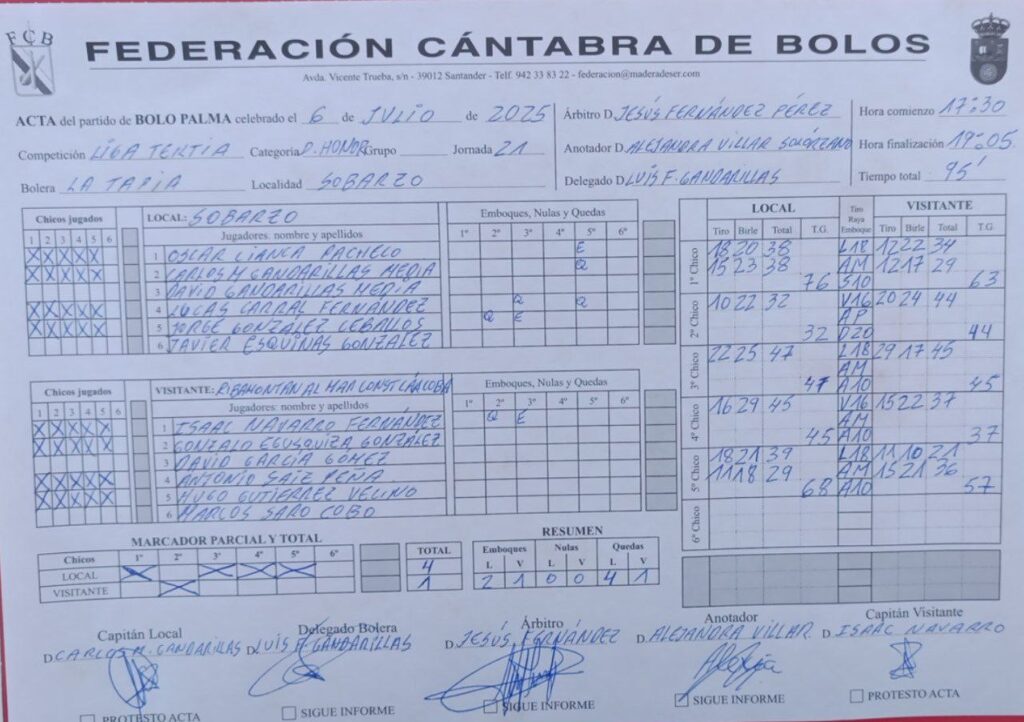 FCB
FEDERACIÓN CÁNTABRA DE BOLOS
Avda. Vicente Trueba, s/n - 39012 Santander - Telf. 942 33 83 22 - federacion@maderadeser.com
ACTA del partido de BOLO PALMA celebrado el 6 de JULIO de 2025
Competición LIGA TERTIA Categoría D. HONOR Grupo Jornada 21
Bolera LA TAPIA Localidad SOBARZO
Árbitro D. JESÚS FERNÁNDEZ PÉREZ
Anotador D. ALEJANDRA VILLAR SOLÓRZANO
Delegado D. LUÍS F. GANDARILLAS
Hora comienzo 17:30
Hora finalización 19:05
Tiempo total 95'
Chicos jugados LOCAL: SOBARZO Emboques, Nulas y Quedas
1 2 3 4 5 6 Jugadores: nombre y apellidos 1º 2º 3º 4º 5º 6º
X X X X X 1 OSCAR CIANCA PACHECO E
X X X X X 2 CARLOS M GANDARILLAS MEDIA Q
3 DAVID GANDARILLAS MEDIA
X X X X X 4 LUCAS CARRAL FERNÁNDEZ Q Q
X X X X X 5 JORGE GONZALEZ CEBALLOS Q E
6 JAVIER ESQUINAS GONZALEZ
Chicos jugados VISITANTE: RIBAMONTAN AL MAR CONST CANCOBA Emboques, Nulas y Quedas
1 2 3 4 5 6 Jugadores: nombre y apellidos 1º 2º 3º 4º 5º 6º
X X X X X 1 ISAAC NAVARRO FERNÁNDEZ Q E
X X X X X 2 GONZALO EGUSQUIZA GONZÁLEZ
3 DAVID GARCÍA GÓMEZ
X X X X X 4 ANTONIO SAIZ PEÑA
X X X X X 5 HUGO GUTIERREZ VELINO
6 MARCOS SARO COBO
LOCAL Tiro Raya Emboque VISITANTE
Tiro Birle Total T.G. Tiro Birle Total T.G.
1º Chico 18 20 38 L18 12 22 34
15 23 38 AM 12 17 29
76 S10 63
2º Chico 10 22 32 V16 20 24 44
AP
32 D20 44
3º Chico 22 25 47 L18 29 17 45
AM
47 A10 45
4º Chico 16 29 45 V16 15 22 37
AM
45 A10 37
5º Chico 18 21 39 L18 11 10 21
11 18 29 AM 15 21 36
68 A10 57
6º Chico
MARCADOR PARCIAL Y TOTAL
Chicos 1º 2º 3º 4º 5º 6º TOTAL
LOCAL X X X X 4
VISITANTE X 1
RESUMEN
Emboques Nulas Quedas
L V L V L V
2 1 0 0 4 1
Capitán Local Delegado Bolera Árbitro Anotador Capitán Visitante
D. CARLOS M. GANDARILLAS D. LUÍS F. GANDARILLAS D. JESÚS FERNÁNDEZ D. ALEJANDRA VILLAR D. ISAAC NAVARRO
PROTESTO ACTA SIGUE INFORME SIGUE INFORME SIGUE INFORME PROTESTO ACTA